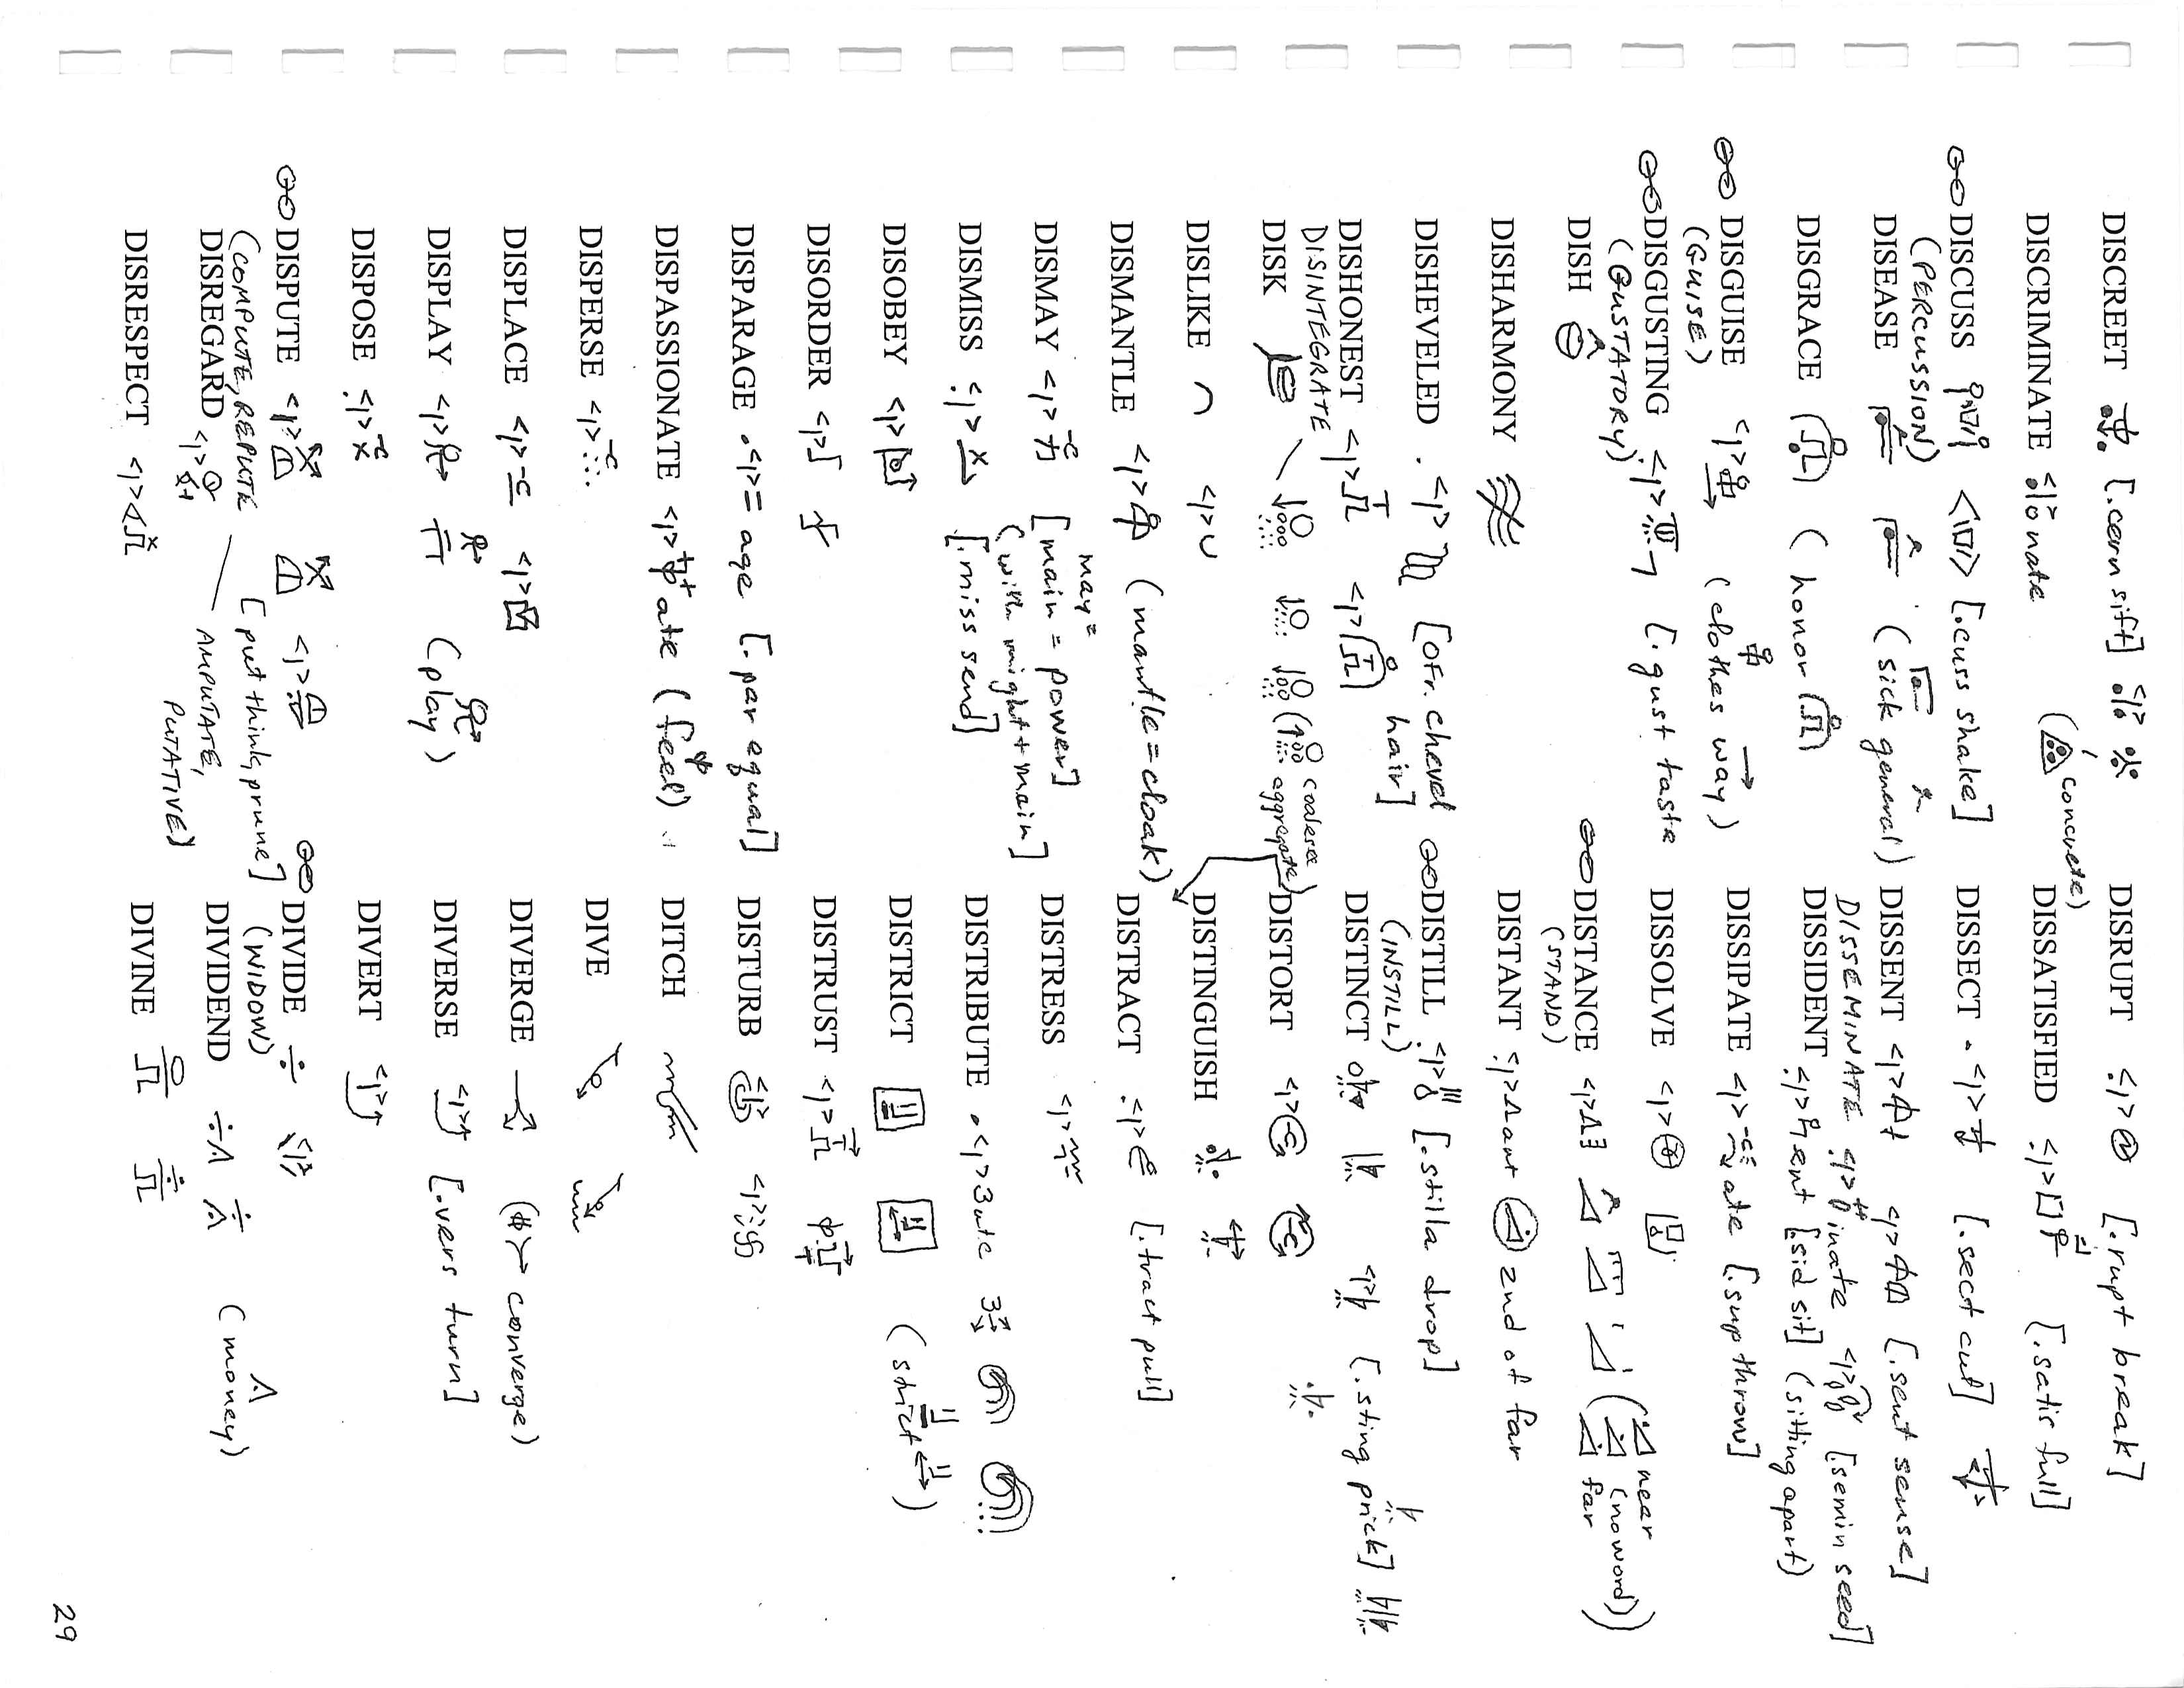 DISCREET [.cern sift]
DISCRIMINATE nate (concrete)
DISCUSS [.cuss shake]
(PERCUSSION)
DISEASE (sick general)
DISGRACE (honor)
DISGUISE (clothes way)
(GUISE)
DISGUSTING [.gust taste
(GUSTATORY)
DISH
DISHARMONY
DISHEVELED [OFr. chevel hair]
DISHONEST
DISINTEGRATE (coalesce aggregate)
DISK
DISLIKE
DISMANTLE (mantle = cloak)
DISMAY [main = power]
may =
(with might + main]
DISMISS [.miss send]
DISOBEY
DISORDER
DISPARAGE = age [.par equal]
DISPASSIONATE ate (feel)
DISPERSE
DISPLACE
DISPLAY (play)
DISPOSE
DISPUTE [put think, prune]
(COMPUTE, REPUTE — AMPUTATE, PUTATIVE)
DISREGARD
DISRESPECT
DISRUPT [.rupt break]
DISSATISFIED [.satis full]
DISSECT [.sect cut]
DISSENT [.sent sense]
DISSEMINATE inate [.semin seed]
DISSIDENT ent [.sid sit] (sitting apart)
DISSIPATE ate [.sup throw]
DISSOLVE
DISTANCE near (no word) far
(STAND)
DISTANT ant 2nd of far
DISTILL [.stilla drop]
(INSTILL)
DISTINCT [.sting prick]
DISTORT
DISTINGUISH
DISTRACT [.tract pull]
DISTRESS
DISTRIBUTE 3ute 3
DISTRICT (strict)
DISTRUST
DISTURB
DITCH
DIVE
DIVERGE (converge)
DIVERSE [.vers turn]
DIVERT
DIVIDE ÷
(WIDOW)
DIVIDEND ÷ (money)
DIVINE
29